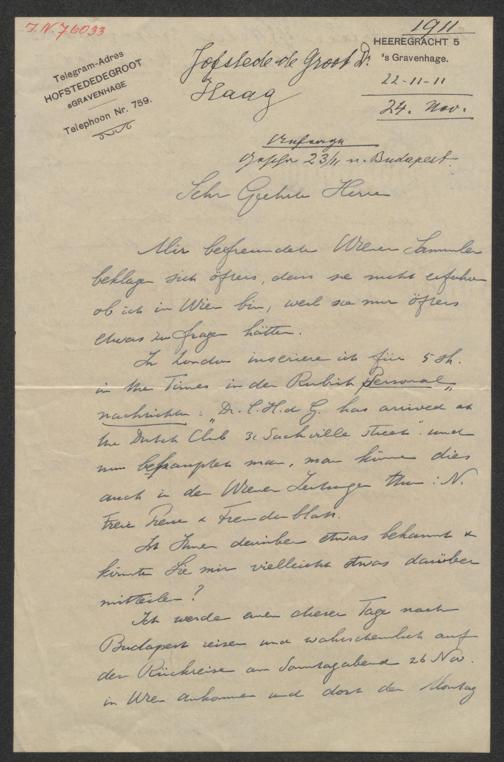 J.N. 76033
1911
Telegram-Adres
HOFSTEDEDEGROOT
sGRAVENHAGE
Telephoon Nr. 759.
Hofstede de Groot Dr.
Haag
HEEREGRACHT 5
's Gravenhage.
22-11-11
24. Nov.
Anfrage
23/11 n. Budapest
Sehr Geehrte Herren
Mir befreundete Wiener Sammler
beklagen sich öfters, dass sie nicht erfuhren
ob ich in Wien bin, weil sie mir öfters
etwas zu fragen hätten.
In London inseriere ich für 5 Sh.
in the Times in der Rubrik „Personal
nachrichten: "Dr. C. H. d G. has arrived at
the Dutch Club 3c Sackville Street" und
nun behauptet man, man könne dies
auch in den Wiener Zeitungen thun: N.
Freie Presse & Fremdenblatt.
Ist Ihnen darüber etwas bekannt &
könnten Sie mir vielleicht etwas darüber
mitteilen?
Ich werde einen dieser Tage nach
Budapest reisen und wahrscheinlich auf
der Rückreise am Sonntagabend 26 Nov.
in Wien ankommen und dort den Montag